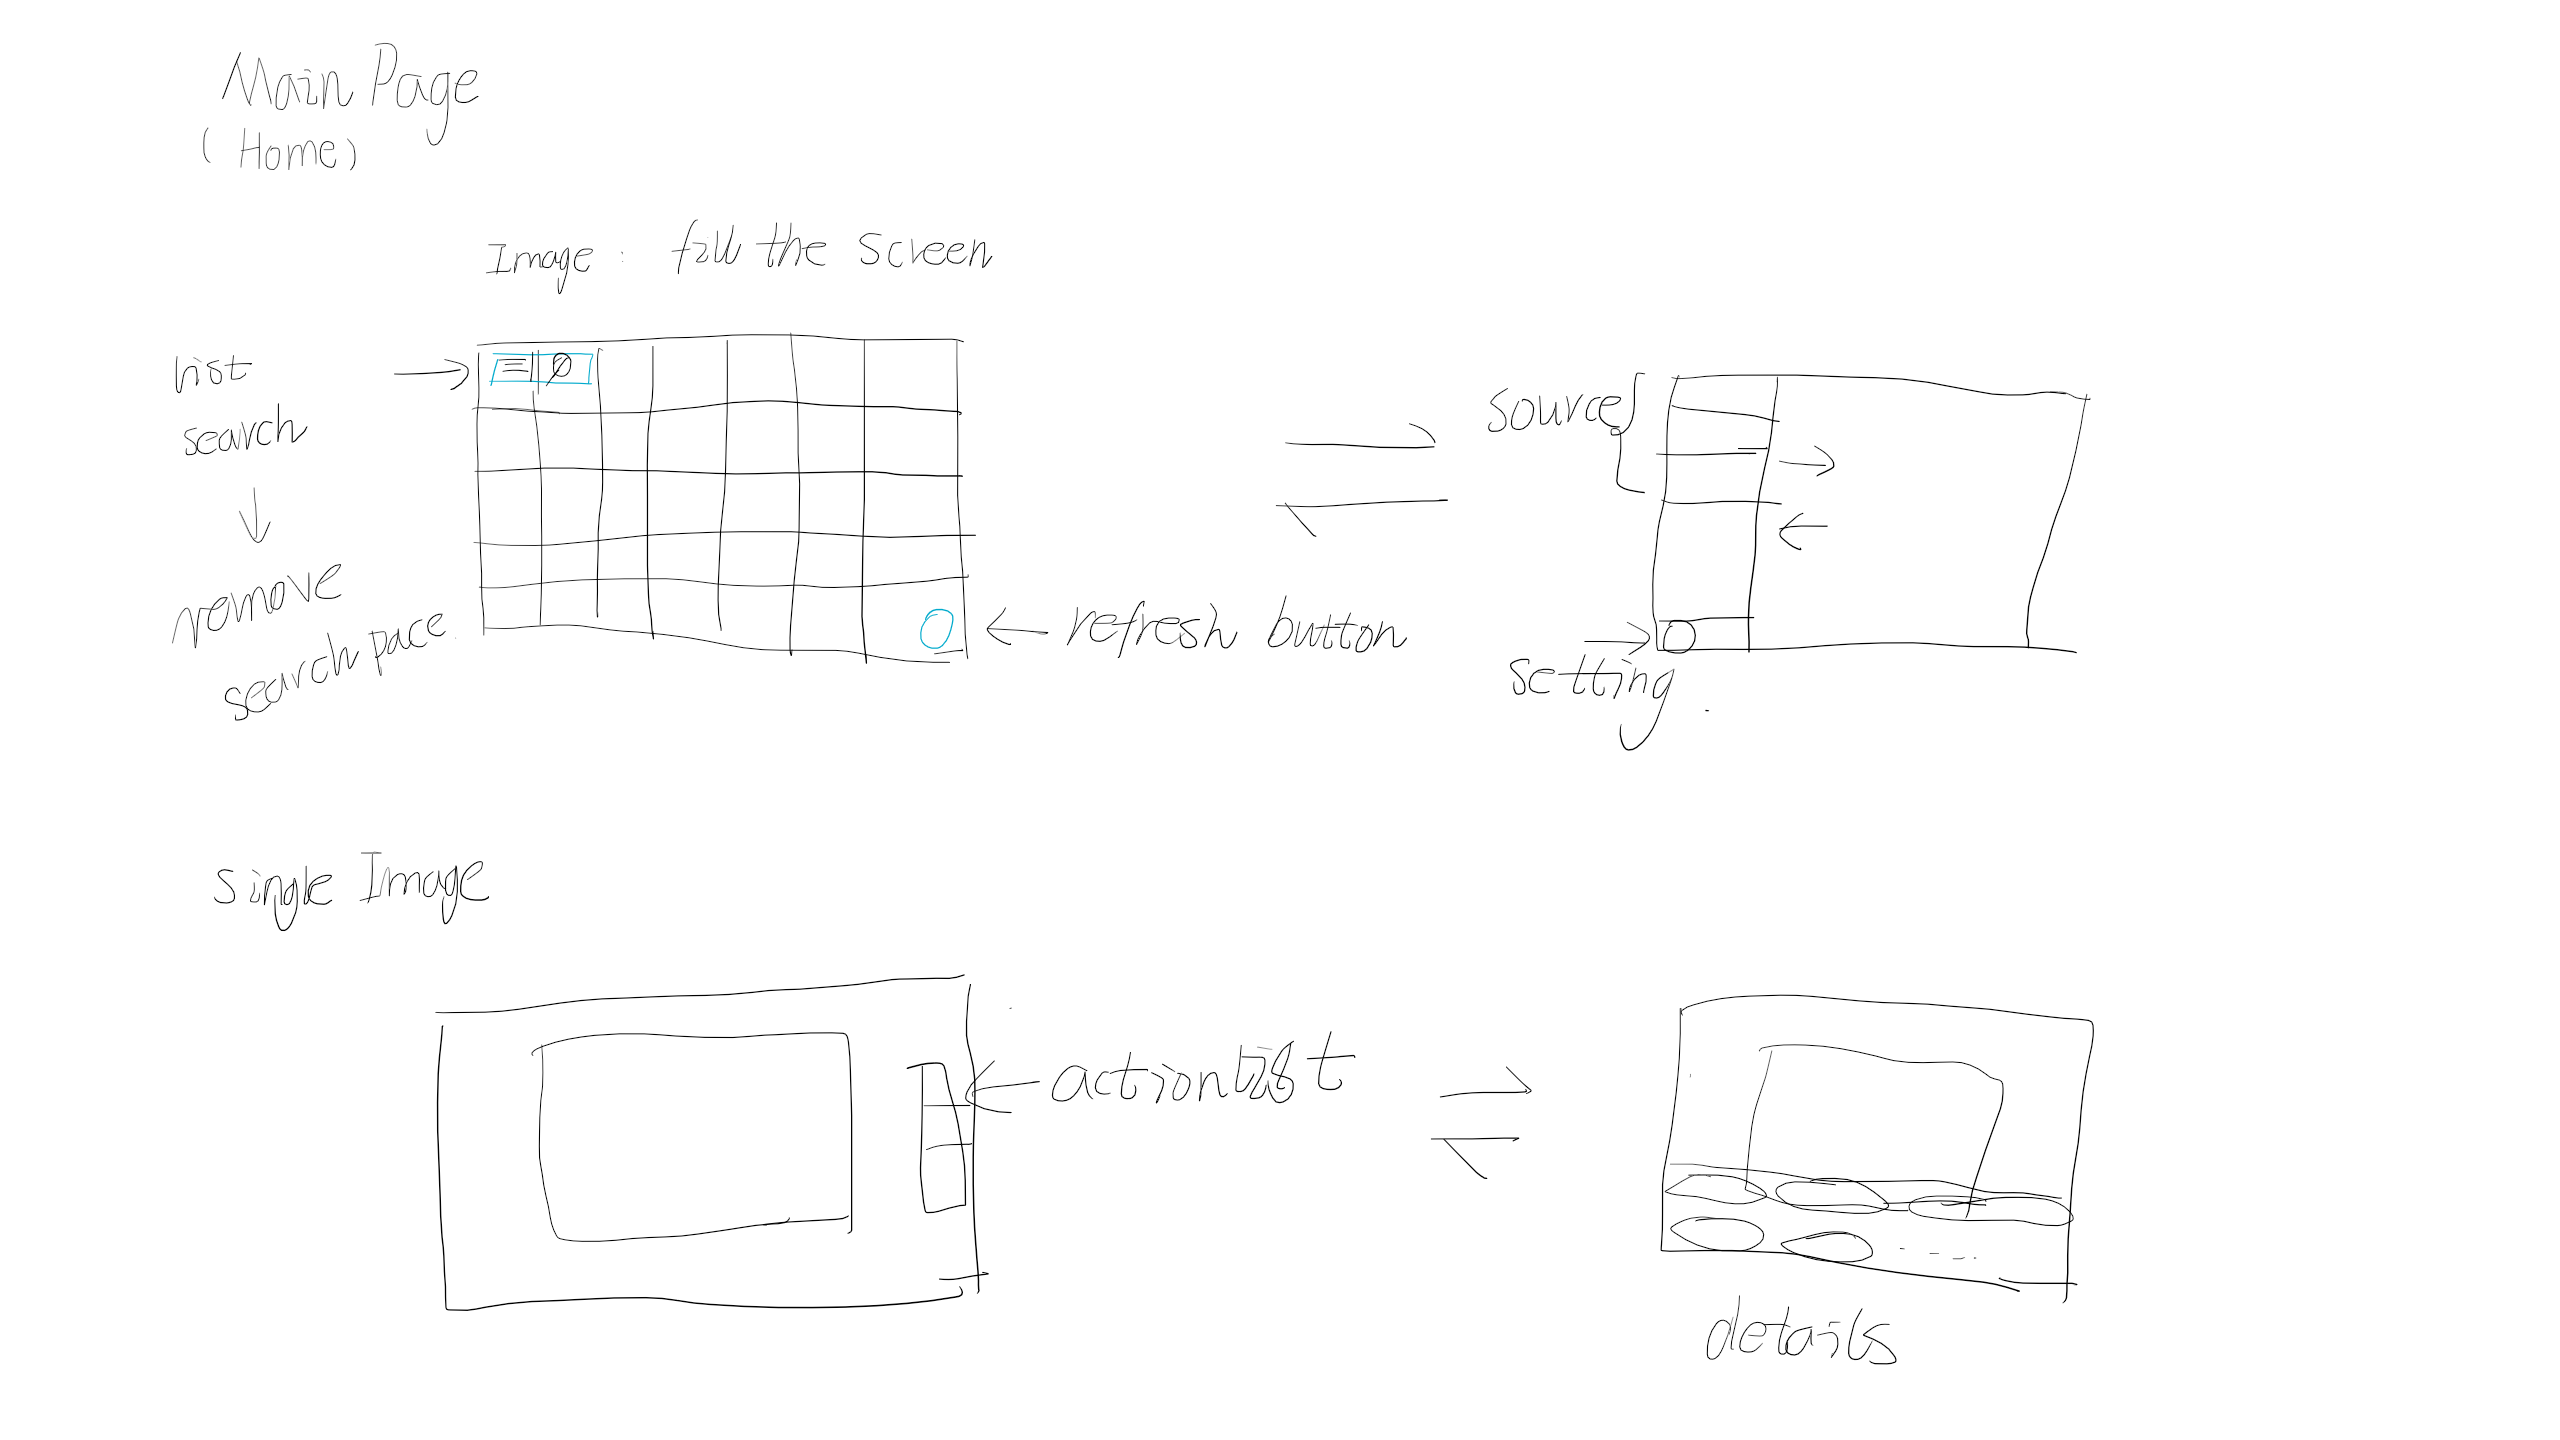 Main Page
(Home)
Image: fill the screen
list
search
remove
search pace.
refresh button
source
setting.
Single Image
action list
details